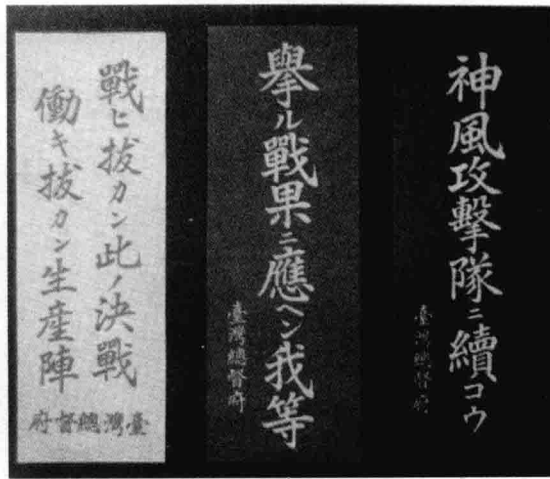 神風攻擊隊ニ續コウ
臺灣總督府
擧ル戰果ニ應ヘン我等
臺灣總督府
戰ヒ拔カン此ノ決戰
働キ拔カン生產陣
臺灣總督府